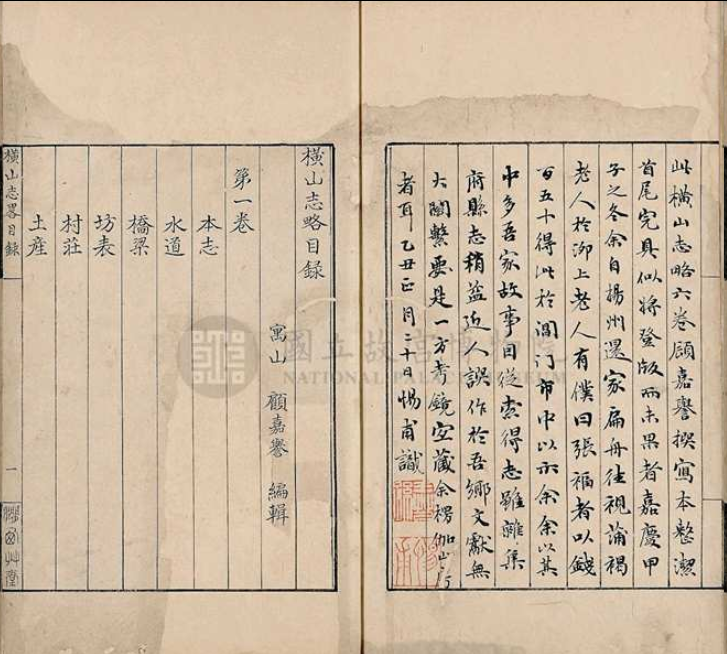 此橫山志略六卷顧嘉譽撰寫本整潔
首尾完具似將登版而未果者嘉慶甲
子之冬余自揚州還家扁舟往視論褐
老人於泖上老人有僕曰張福者以錢
百五十得此於閶門市中以示余余以其
中多吾家故事因從索得志雖雜集
府縣志稍益近人誤作於吾鄉文獻無
大關繫要是一方考鏡宜藏余楞伽山
者耳乙丑正月二十日惕甫識
橫山志略目録
寓山 顧嘉譽 編輯
第一卷
本志
水道
橋梁
坊表
村莊
土産
橫山志畧目録
一
艸堂
國立故宮博物院
NATIONAL PALACE MUSEUM